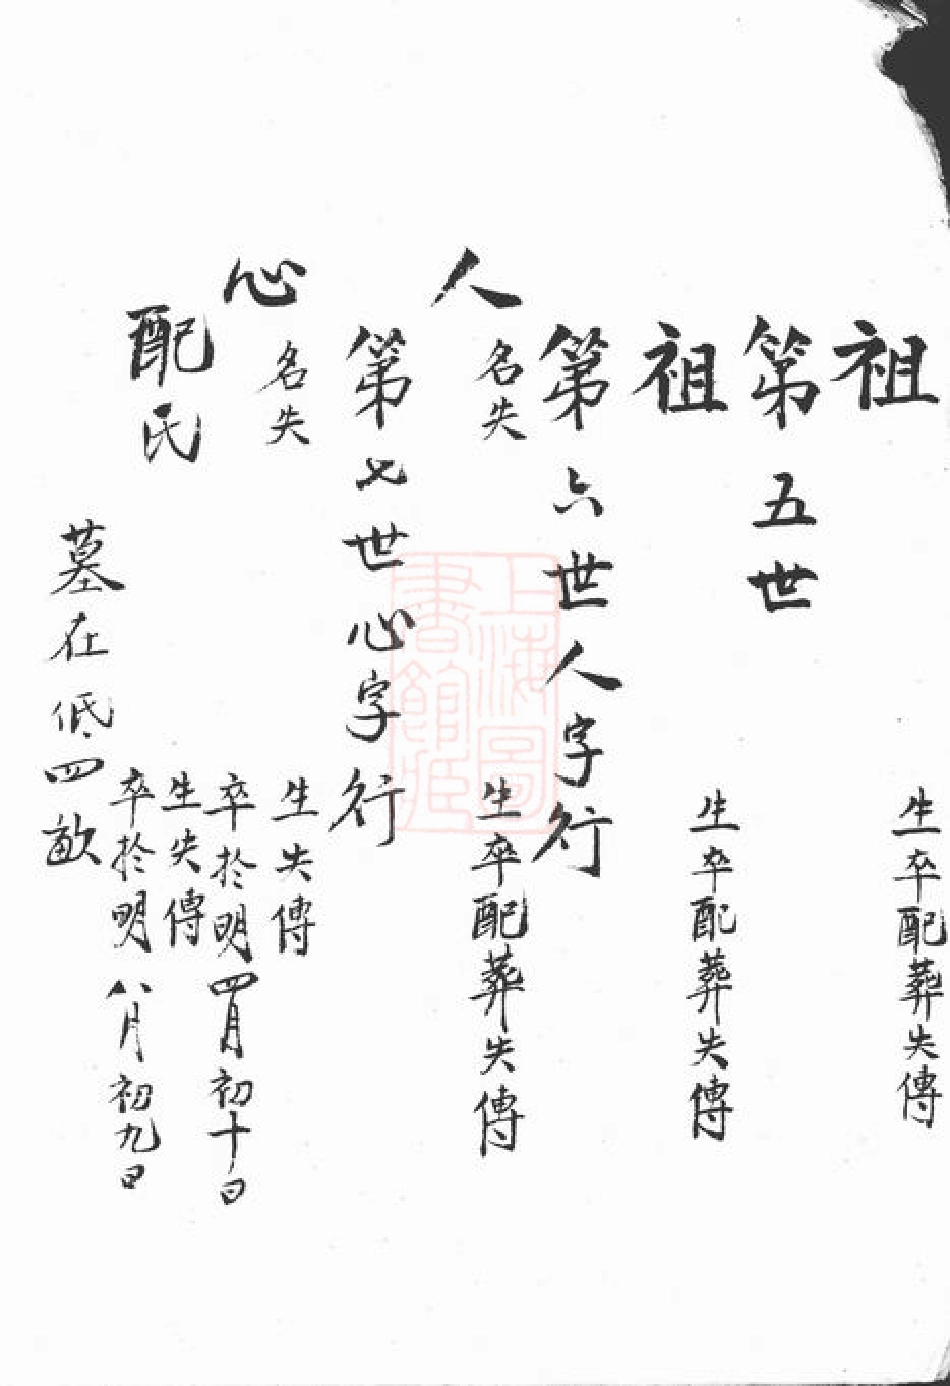 祖
生卒配葬失傳
第五世
祖
生卒配葬失傳
第六世人字行
人
名失
生卒配葬失傳
第七世心字行
心
名失
生失傳
卒於明四月初十日
配氏
生失傳
卒於明八月初九日
墓在低四畝
上海圖書館藏